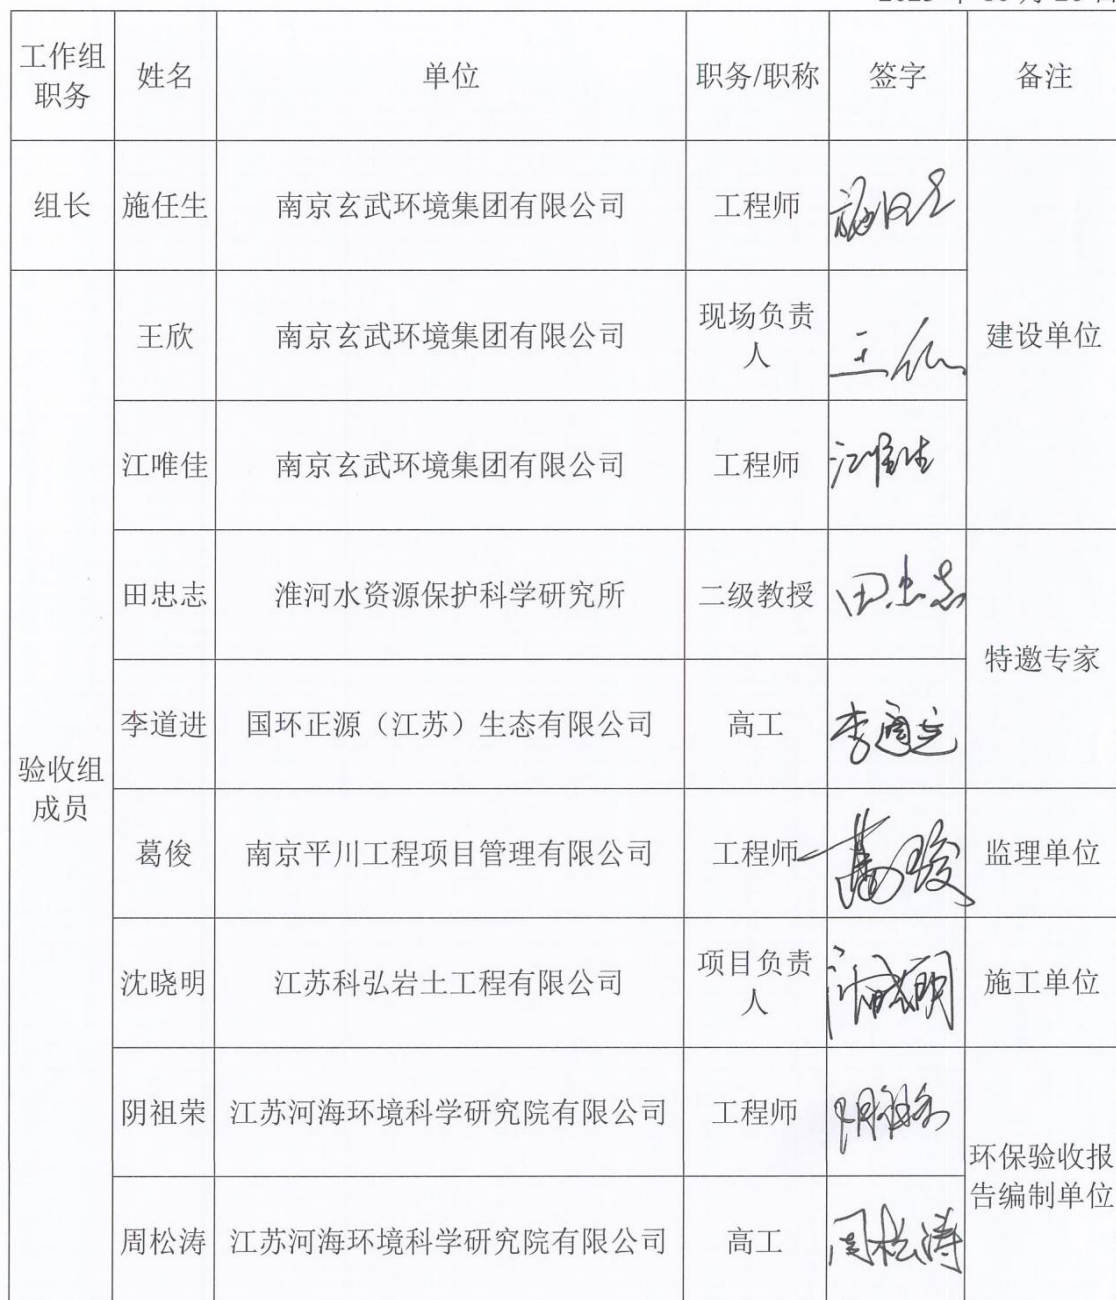 工作组职务 姓名 单位 职务/职称 签字 备注
组长 施任生 南京玄武环境集团有限公司 工程师 施任生 建设单位
验收组成员 王欣 南京玄武环境集团有限公司 现场负责人 王欣
江唯佳 南京玄武环境集团有限公司 工程师 江唯佳
田忠志 淮河水资源保护科学研究所 二级教授 田忠志 特邀专家
李道进 国环正源（江苏）生态有限公司 高工 李道进
葛俊 南京平川工程项目管理有限公司 工程师 葛俊 监理单位
沈晓明 江苏科弘岩土工程有限公司 项目负责人 施工单位
阴祖荣 江苏河海环境科学研究院有限公司 工程师 阴祖荣 环保验收报告编制单位
周松涛 江苏河海环境科学研究院有限公司 高工 周松涛